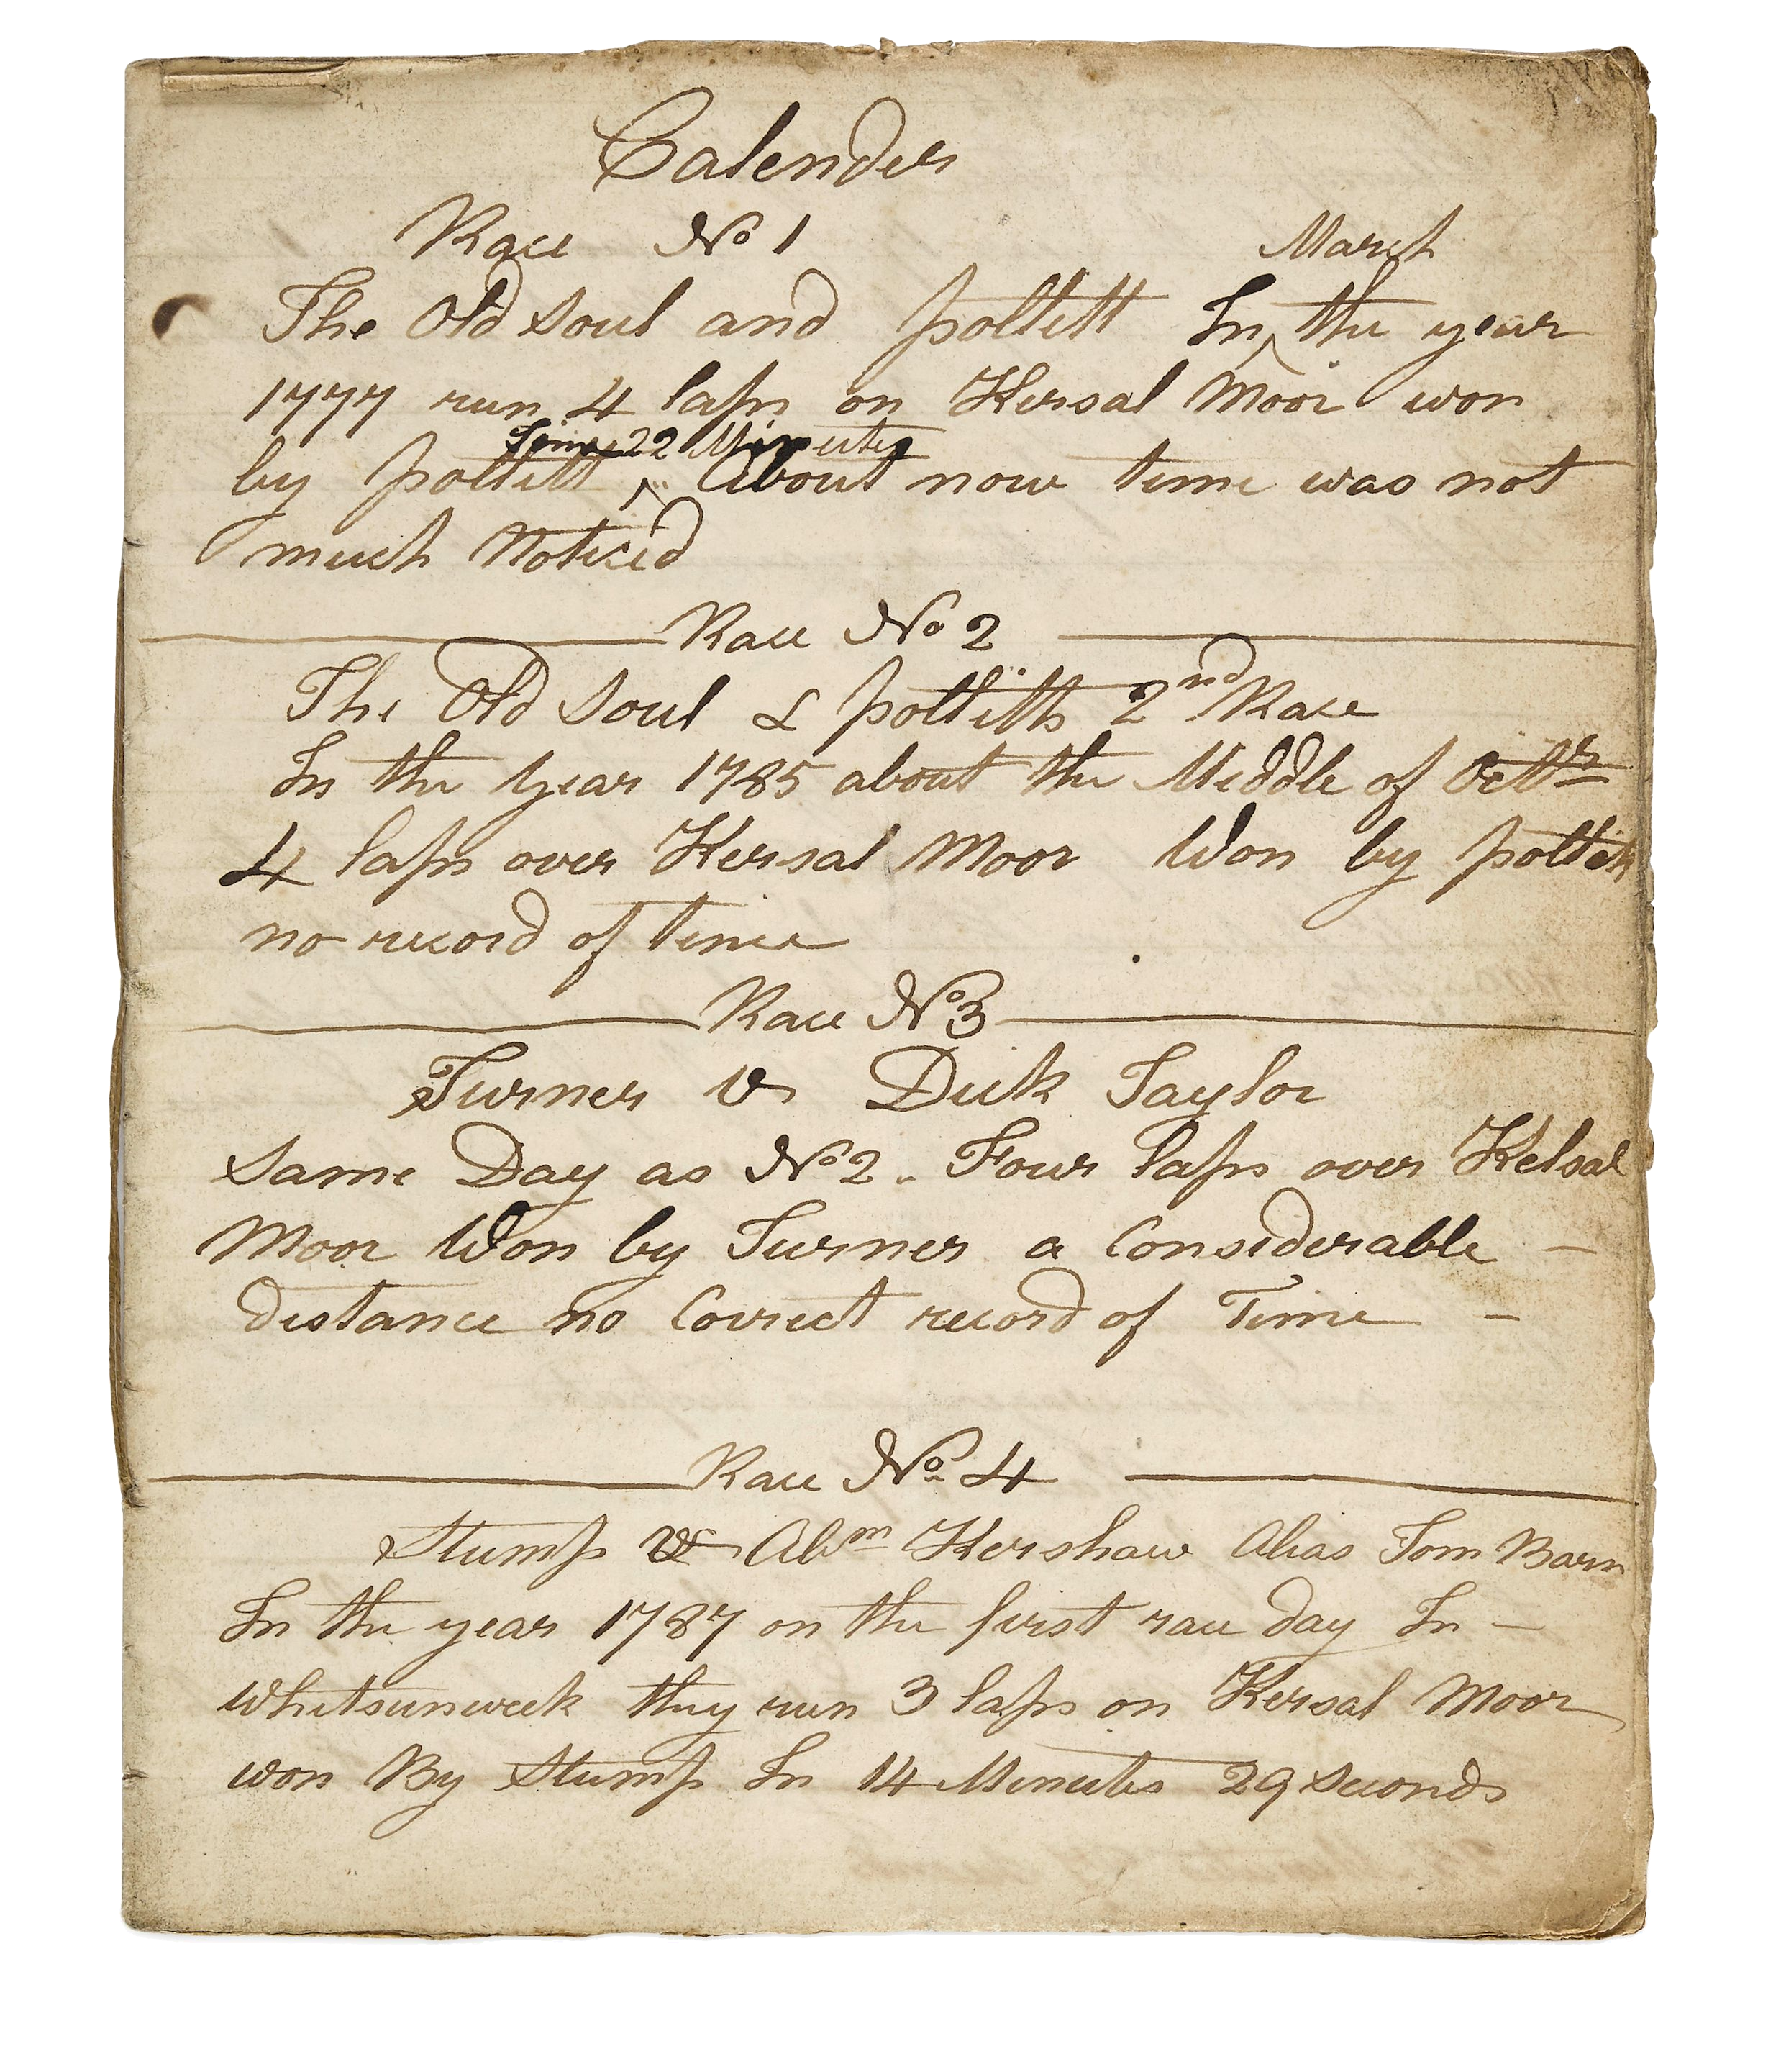 Calender
Race No 1
March
The Old Soul and pollitt In ^ the year
1777 run 4 laps on Kersal Moor won
Time 22 Minutes
by pollitt ^ About now time was not
much Noticed
Race No 2
The Old Soul & pollitts 2nd Race
In the Year 1785 about the Middle of Octbr
4 laps over Kersal Moor Won by pollitt
no record of time
Race No 3
Turner Vs Dick Taylor
Same Day as No 2. Four laps over Kelsal
Moor Won by Turner a Considerable –
distance no Correct record of Time –
Race No. 4
Stump Vs Abm Kershaw Alias Tom Barn
In the year 1787 on the first race day In –
Whitsunweek they run 3 laps on Kersal Moor
won By Stump In 14 Minutes 29 seconds